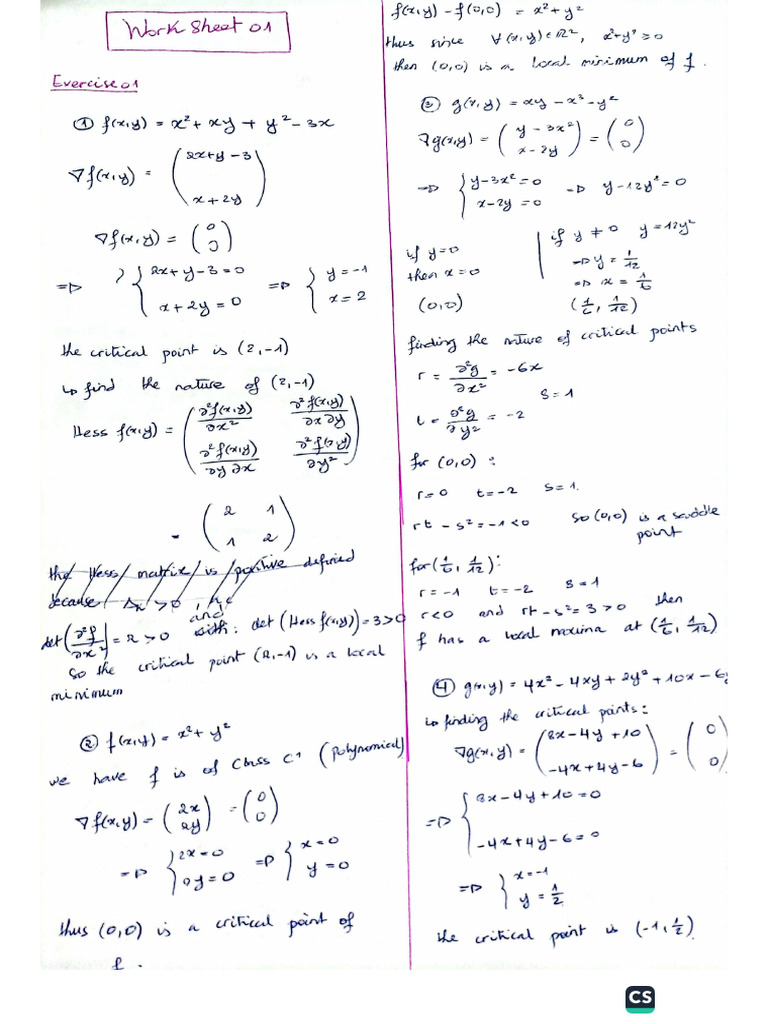 Work Sheet 01
Exercise 01
① f(x,y) = x² + xy + y² - 3x
∇f(x,y) = ( 2x+y-3
x+2y )
∇f(x,y) = ( 0
0 )
=> { 2x+y-3=0
x+2y=0 => { y=-1
x=2
the critical point is (2,-1)
↳ find the nature of (2,-1)
Hess f(x,y) = ( ∂²f(x,y)/∂x² ∂²f(x,y)/∂x∂y
∂²f(x,y)/∂y∂x ∂²f(x,y)/∂y² )
= ( 2 1
1 2 )
the Hess matrix is positive defined
because
det(∂²f/∂x²) = 2 > 0 and with: det (Hess f(x,y)) = 3 > 0
so the critical point (2,-1) is a local
minimum
② f(x,y) = x² + y²
we have f is of class C1 (polynomical)
∇f(x,y) = ( 2x
2y ) = ( 0
0 )
=> { 2x=0
2y=0 => { x=0
y=0
thus (0,0) is a critical point of
f.
f(x,y) - f(0,0) = x² + y²
thus since ∀(x,y)∈ℝ², x²+y² ≥ 0
then (0,0) is a local minimum of f.
③ g(x,y) = xy - x³ - y²
∇g(x,y) = ( y - 3x²
x - 2y ) = ( 0
0 )
=> { y-3x²=0
x-2y=0 => y-12y²=0
if y=0
then x=0
(0,0)
if y ≠ 0 y=12y²
=> y = 1/12
=> x = 1/6
(1/6, 1/12)
finding the nture of critical points
r = ∂²g/∂x² = -6x
s = 1
t = ∂²g/∂y² = -2
for (0,0) :
r=0 t=-2 s=1.
rt - s² = -1 < 0 so (0,0) is a saddle
point
for (1/6, 1/12):
r = -1 t = -2 s = 1
r<0 and rt - s² = 3 > 0 then
f has a local maxima at (1/6, 1/12)
④ g(x,y) = 4x² - 4xy + 2y² + 10x - 6y
↳ finding the critical points:
∇g(x,y) = ( 8x-4y+10
-4x+4y-6 ) = ( 0
0 )
=> { 8x-4y+10=0
-4x+4y-6=0
=> { x=-1
y=1/2
the critical point is (-1, 1/2).
CS